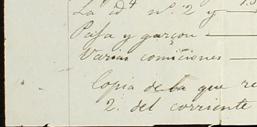 La id^a nº. 2 y
Paja y garzon
Varias comisiones
Copia de la que re
2. del corriente